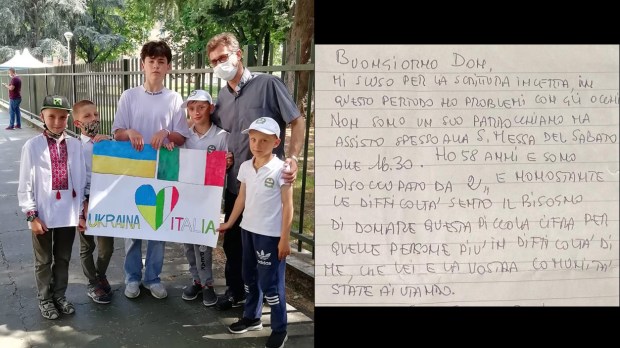 UKRAINA ITALIA
BUONGIORNO DON,
MI SCUSO PER LA SCRITTURA INCERTA, IN
QUESTO PERIODO HO PROBLEMI CON GLI OCCHI
NON SONO UN SUO PARROCCHIANO MA
ASSISTO SPESSO ALLA S. MESSA DEL SABATO
ALLE 16.30. HO 58 ANNI E SONO
DISOCCUPATO DA 2, E NONOSTANTE
LE DIFFICOLTA' SENTO IL BISOGNO
DI DONARE QUESTA PICCOLA CIFRA PER
QUELLE PERSONE PIU' IN DIFFICOLTA' DI
ME, CHE LEI E LA VOSTRA COMUNITA'
STATE AIUTANDO.